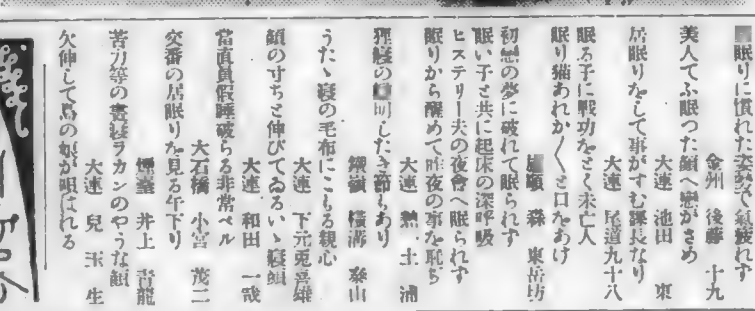 眠りに慣れた姿勢で氣疲れず
金州 後藤 十九
美人てふ眠つた顔へ戀がさめ
大連 池田 東
居眠りをして事がすむ課長なり
大連 尾道九十八
眠る子に戰功をとく未亡人
眠り猫あれかく〳〵と口をあけ
旅順 森 東岳坊
初戀の夢に破れて眠られず
眠い子と共に起床の深呼吸
ヒステリー夫の夜會へ眠られず
眠りから醒めて昨夜の事を恥ぢ
大連 熱 土 浦
狸寝の 明したき節もあり
鐵嶺 横溝 泰山
うたゝ寝の毛布にこもる親心
大連 下元兎喜雄
顔の寸ちと伸びてゐるいゝ寝顔
大連 和田 一哉
當直員假睡破らる非常ベル
大石橋 小宮 茂二
交番の居眠りを見る午下り
煙臺 井上 青龍
苦力等の晝寝ラカンのやうな顔
大連 兒 玉 生
欠伸して島の娘が唄はれる